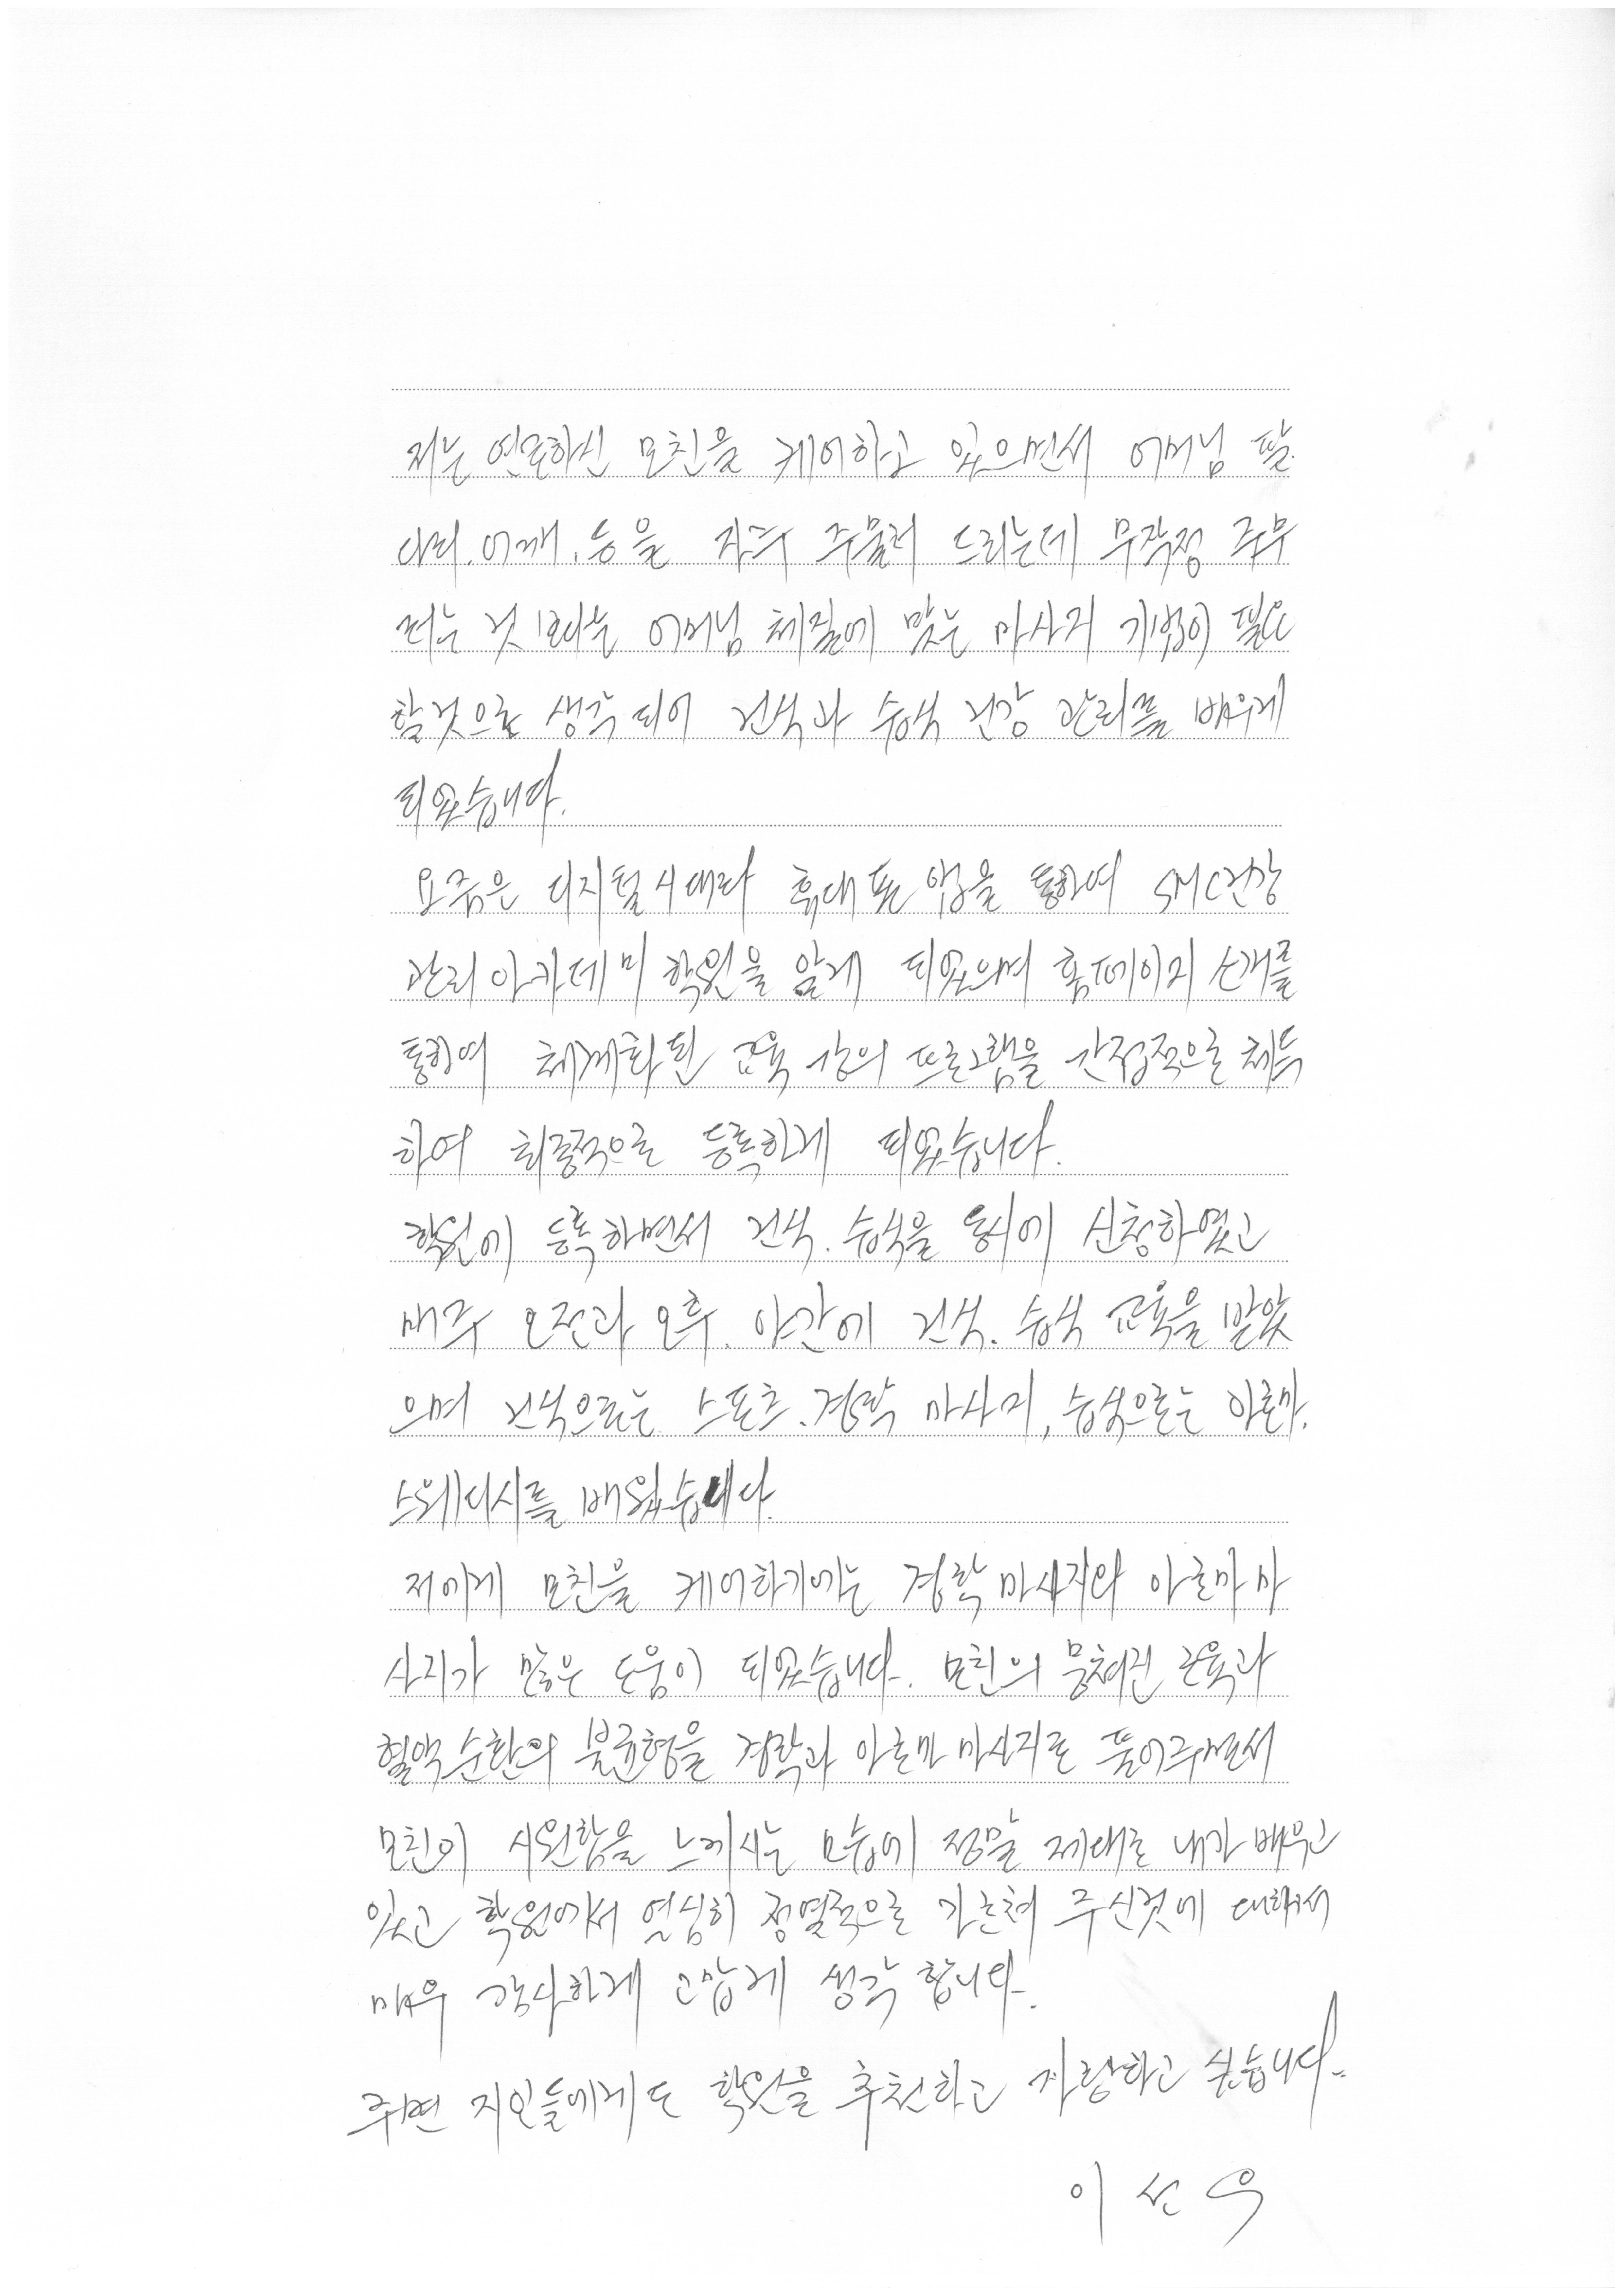 저는 연로하신 모친을 케어하고 있으면서 어머님 팔.
다리. 어깨. 등을 자주 주물러 드리는데 무작정 주무
르는 것 보다는 어머님 체질에 맞는 마사지 기법이 필요
할것으로 생각되어 건식과 습식 건강 관리를 배우게
되었습니다.
요즘은 디지털시대라 휴대폰 앱을 통하여 SMC건강
관리아카데미 학원을 알게 되었으며 홈페이지 소개를
통하여 체계화된 교육 강의 프로그램을 간접적으로 체득
하여 최종적으로 등록하게 되었습니다.
학원에 등록하면서 건식. 습식을 동시에 신청하였고
매주 오전과 오후. 야간에 건식. 습식 교육을 받았
으며 건식으로는 스포츠.경락 마사지, 습식으로는 아로마.
스웨디시를 배웠습니다.
저에게 모친을 케어하기에는 경락마사지와 아로마 마
사지가 많은 도움이 되었습니다. 모친의 뭉쳐진 근육과
혈액순환의 불균형을 경락과 아로마 마사지로 풀어주면서
모친이 시원함을 느끼시는 모습에 정말 제대로 내가 배우고
있고 학원에서 열심히 정열적으로 가르쳐 주신것에 대해서
매우 감사하게 고맙게 생각 합니다.
주변 지인들에게도 학원을 추천하고 자랑하고 싶습니다.
이 선 우